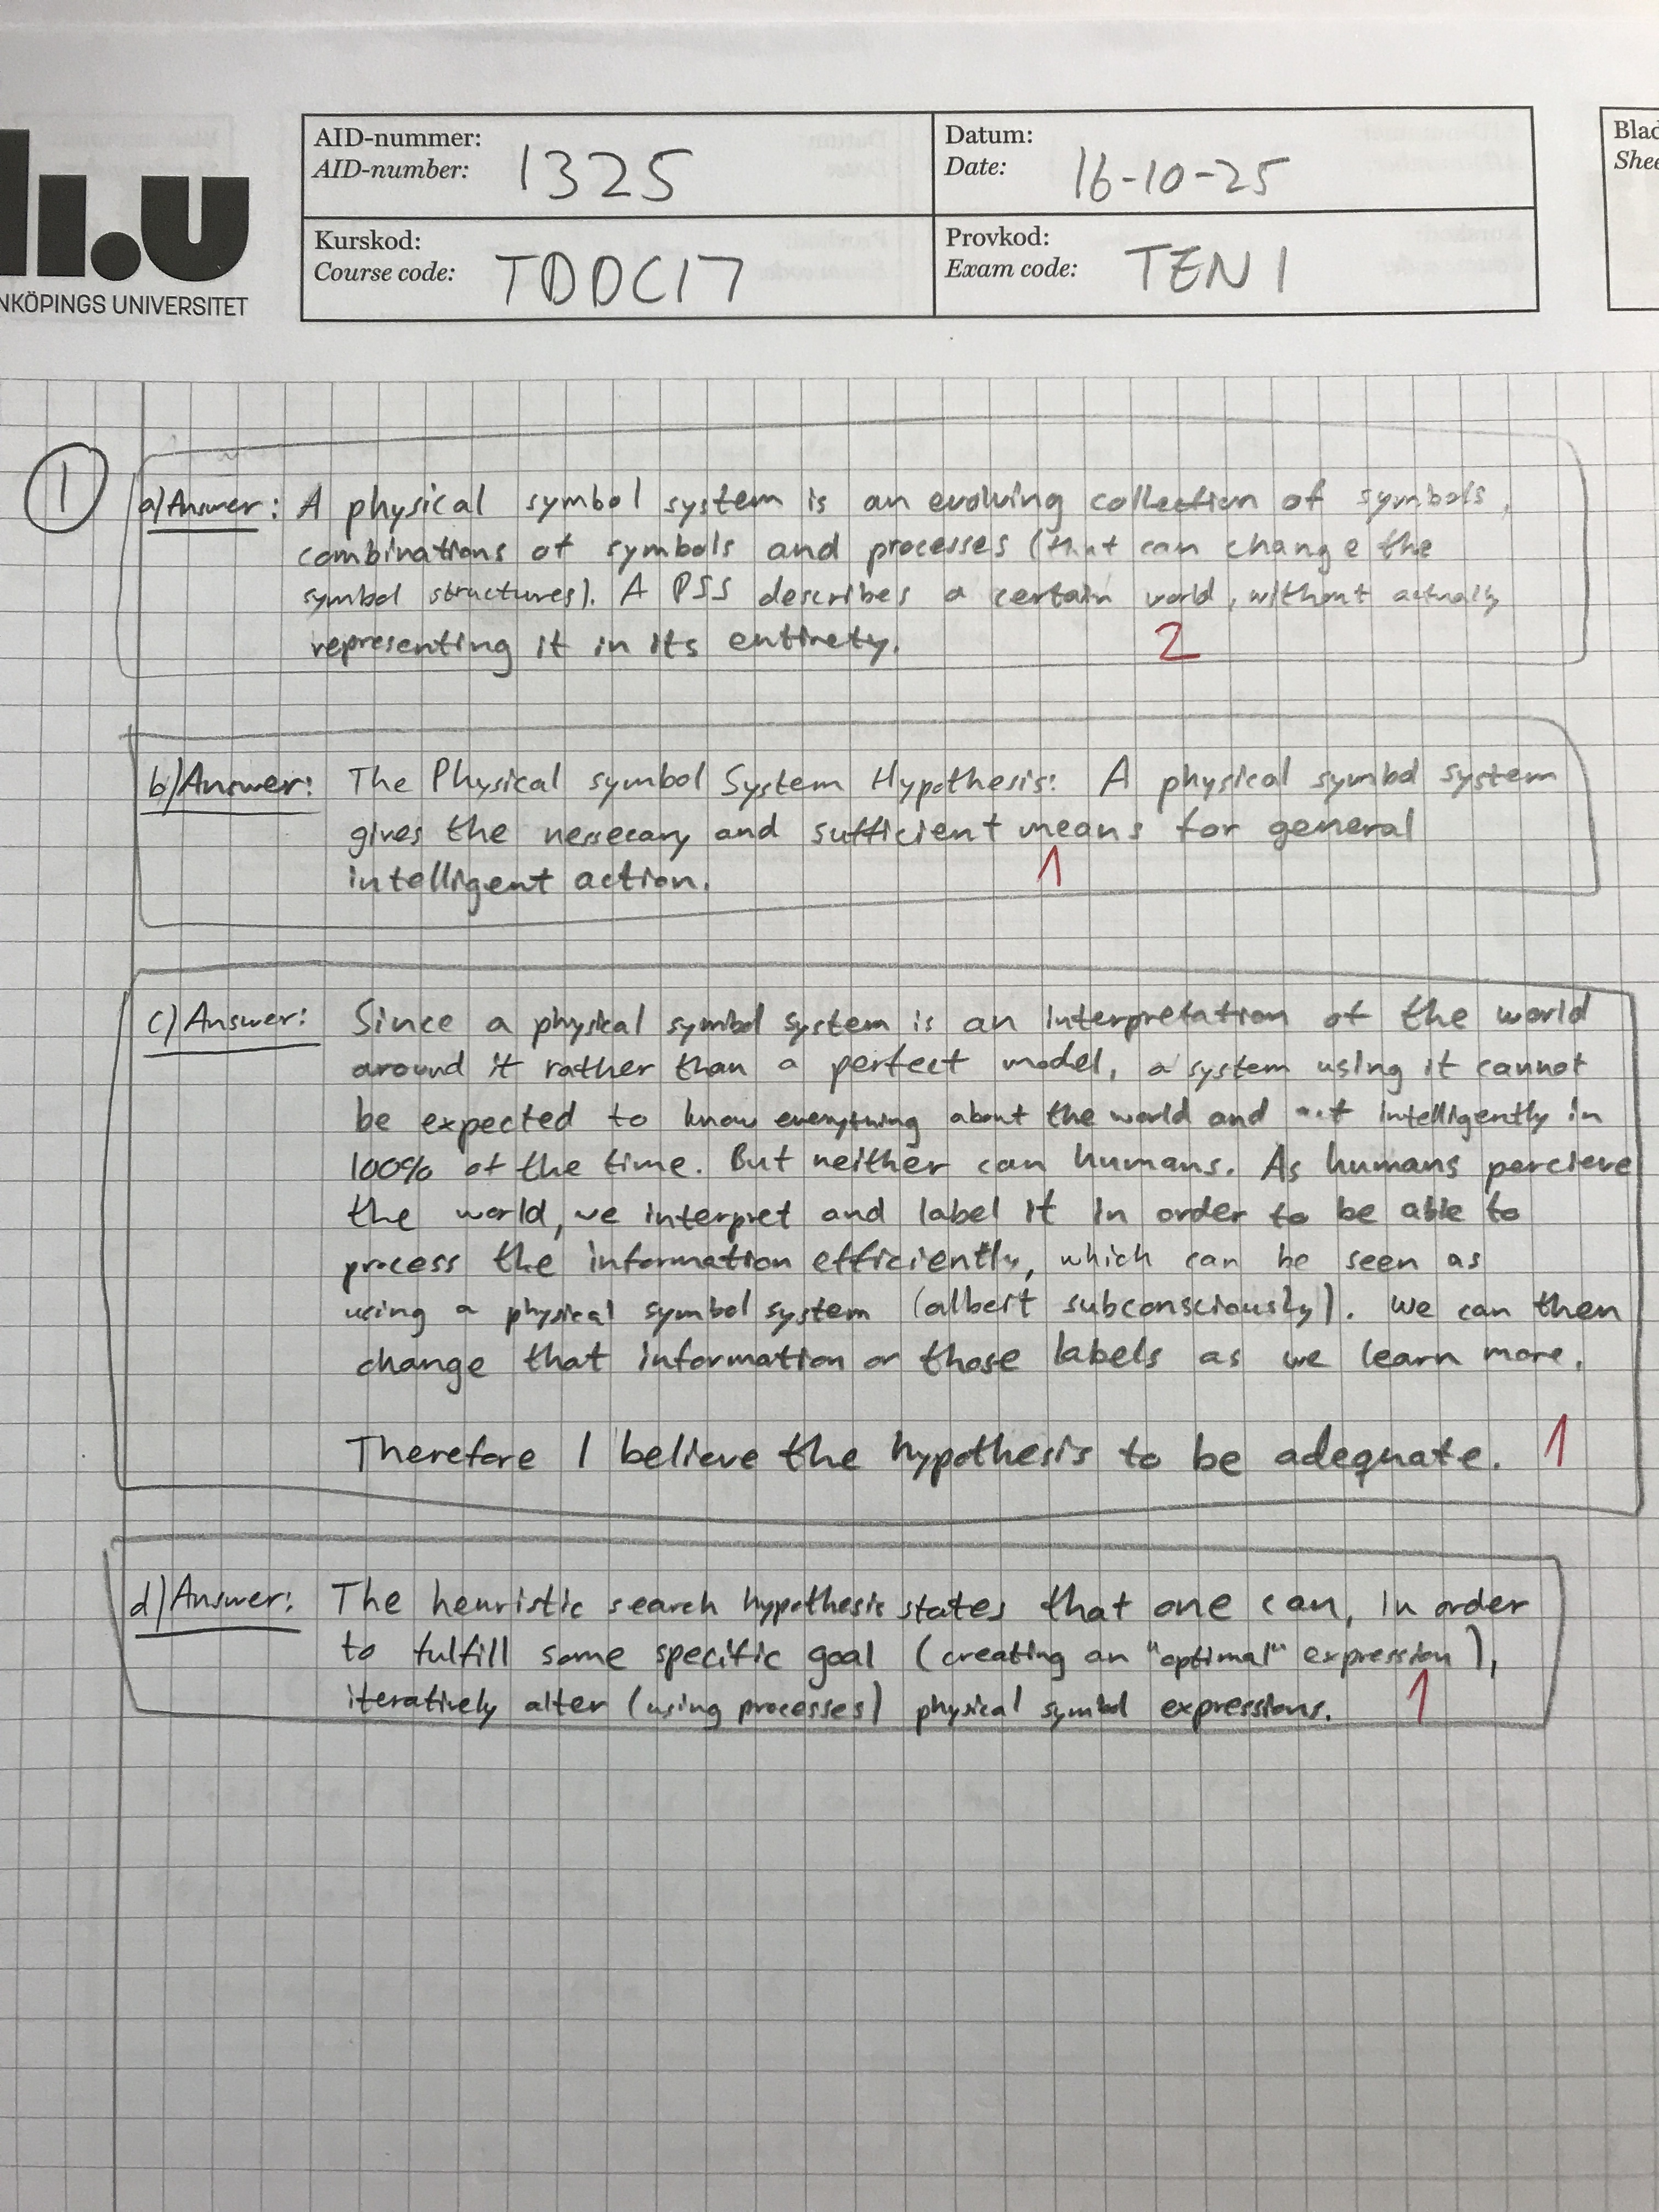 li.u
NKÖPINGS UNIVERSITET
AID-nummer:
AID-number: 1325
Datum:
Date: 16-10-25
Kurskod:
Course code: TDDC17
Provkod:
Exam code: TEN1
Blad
Shee
1
a) Answer: A physical symbol system is an evolving collection of symbols,
combinations of symbols and processes (that can change the
symbol structures). A PSS describes a certain world, without actually
representing it in its entirety.
2
b) Answer: The Physical symbol System Hypothesis: A physical symbol system
gives the nessecary and sufficient means for general
intelligent action.
1
c) Answer: Since a physical symbol system is an interpretation of the world
around it rather than a perfect model, a system using it cannot
be expected to know everything about the world and act intelligently in
100% of the time. But neither can humans. As humans percieve
the world, we interpret and label it in order to be able to
process the information efficiently, which can be seen as
using a physical symbol system (albert subconsciously). We can then
change that information or those labels as we learn more.
Therefore I believe the hypothesis to be adequate. 1
d) Answer: The heuristic search hypothesis states that one can, in order
to fulfill some specific goal (creating an "optimal" expression),
iteratively alter (using processes) physical symbol expressions. 1